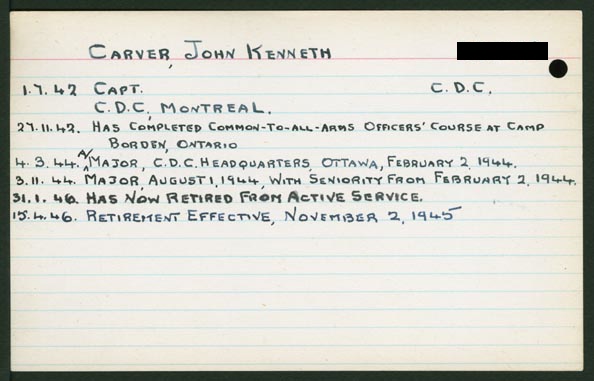 CARVER, JOHN KENNETH
1.7.42 CAPT. C.D.C.
C.D.C., MONTREAL.
27.11.42. HAS COMPLETED COMMON-TO-ALL-ARMS OFFICERS' COURSE AT CAMP
BORDEN, ONTARIO
4.3.44. A/MAJOR, C.D.C. HEADQUARTERS, OTTAWA, FEBRUARY 2, 1944.
3.11.44. MAJOR, AUGUST 1, 1944, WITH SENIORITY FROM FEBRUARY 2, 1944.
31.1.46. HAS NOW RETIRED FROM ACTIVE SERVICE.
15.4.46. RETIREMENT EFFECTIVE, NOVEMBER 2, 1945